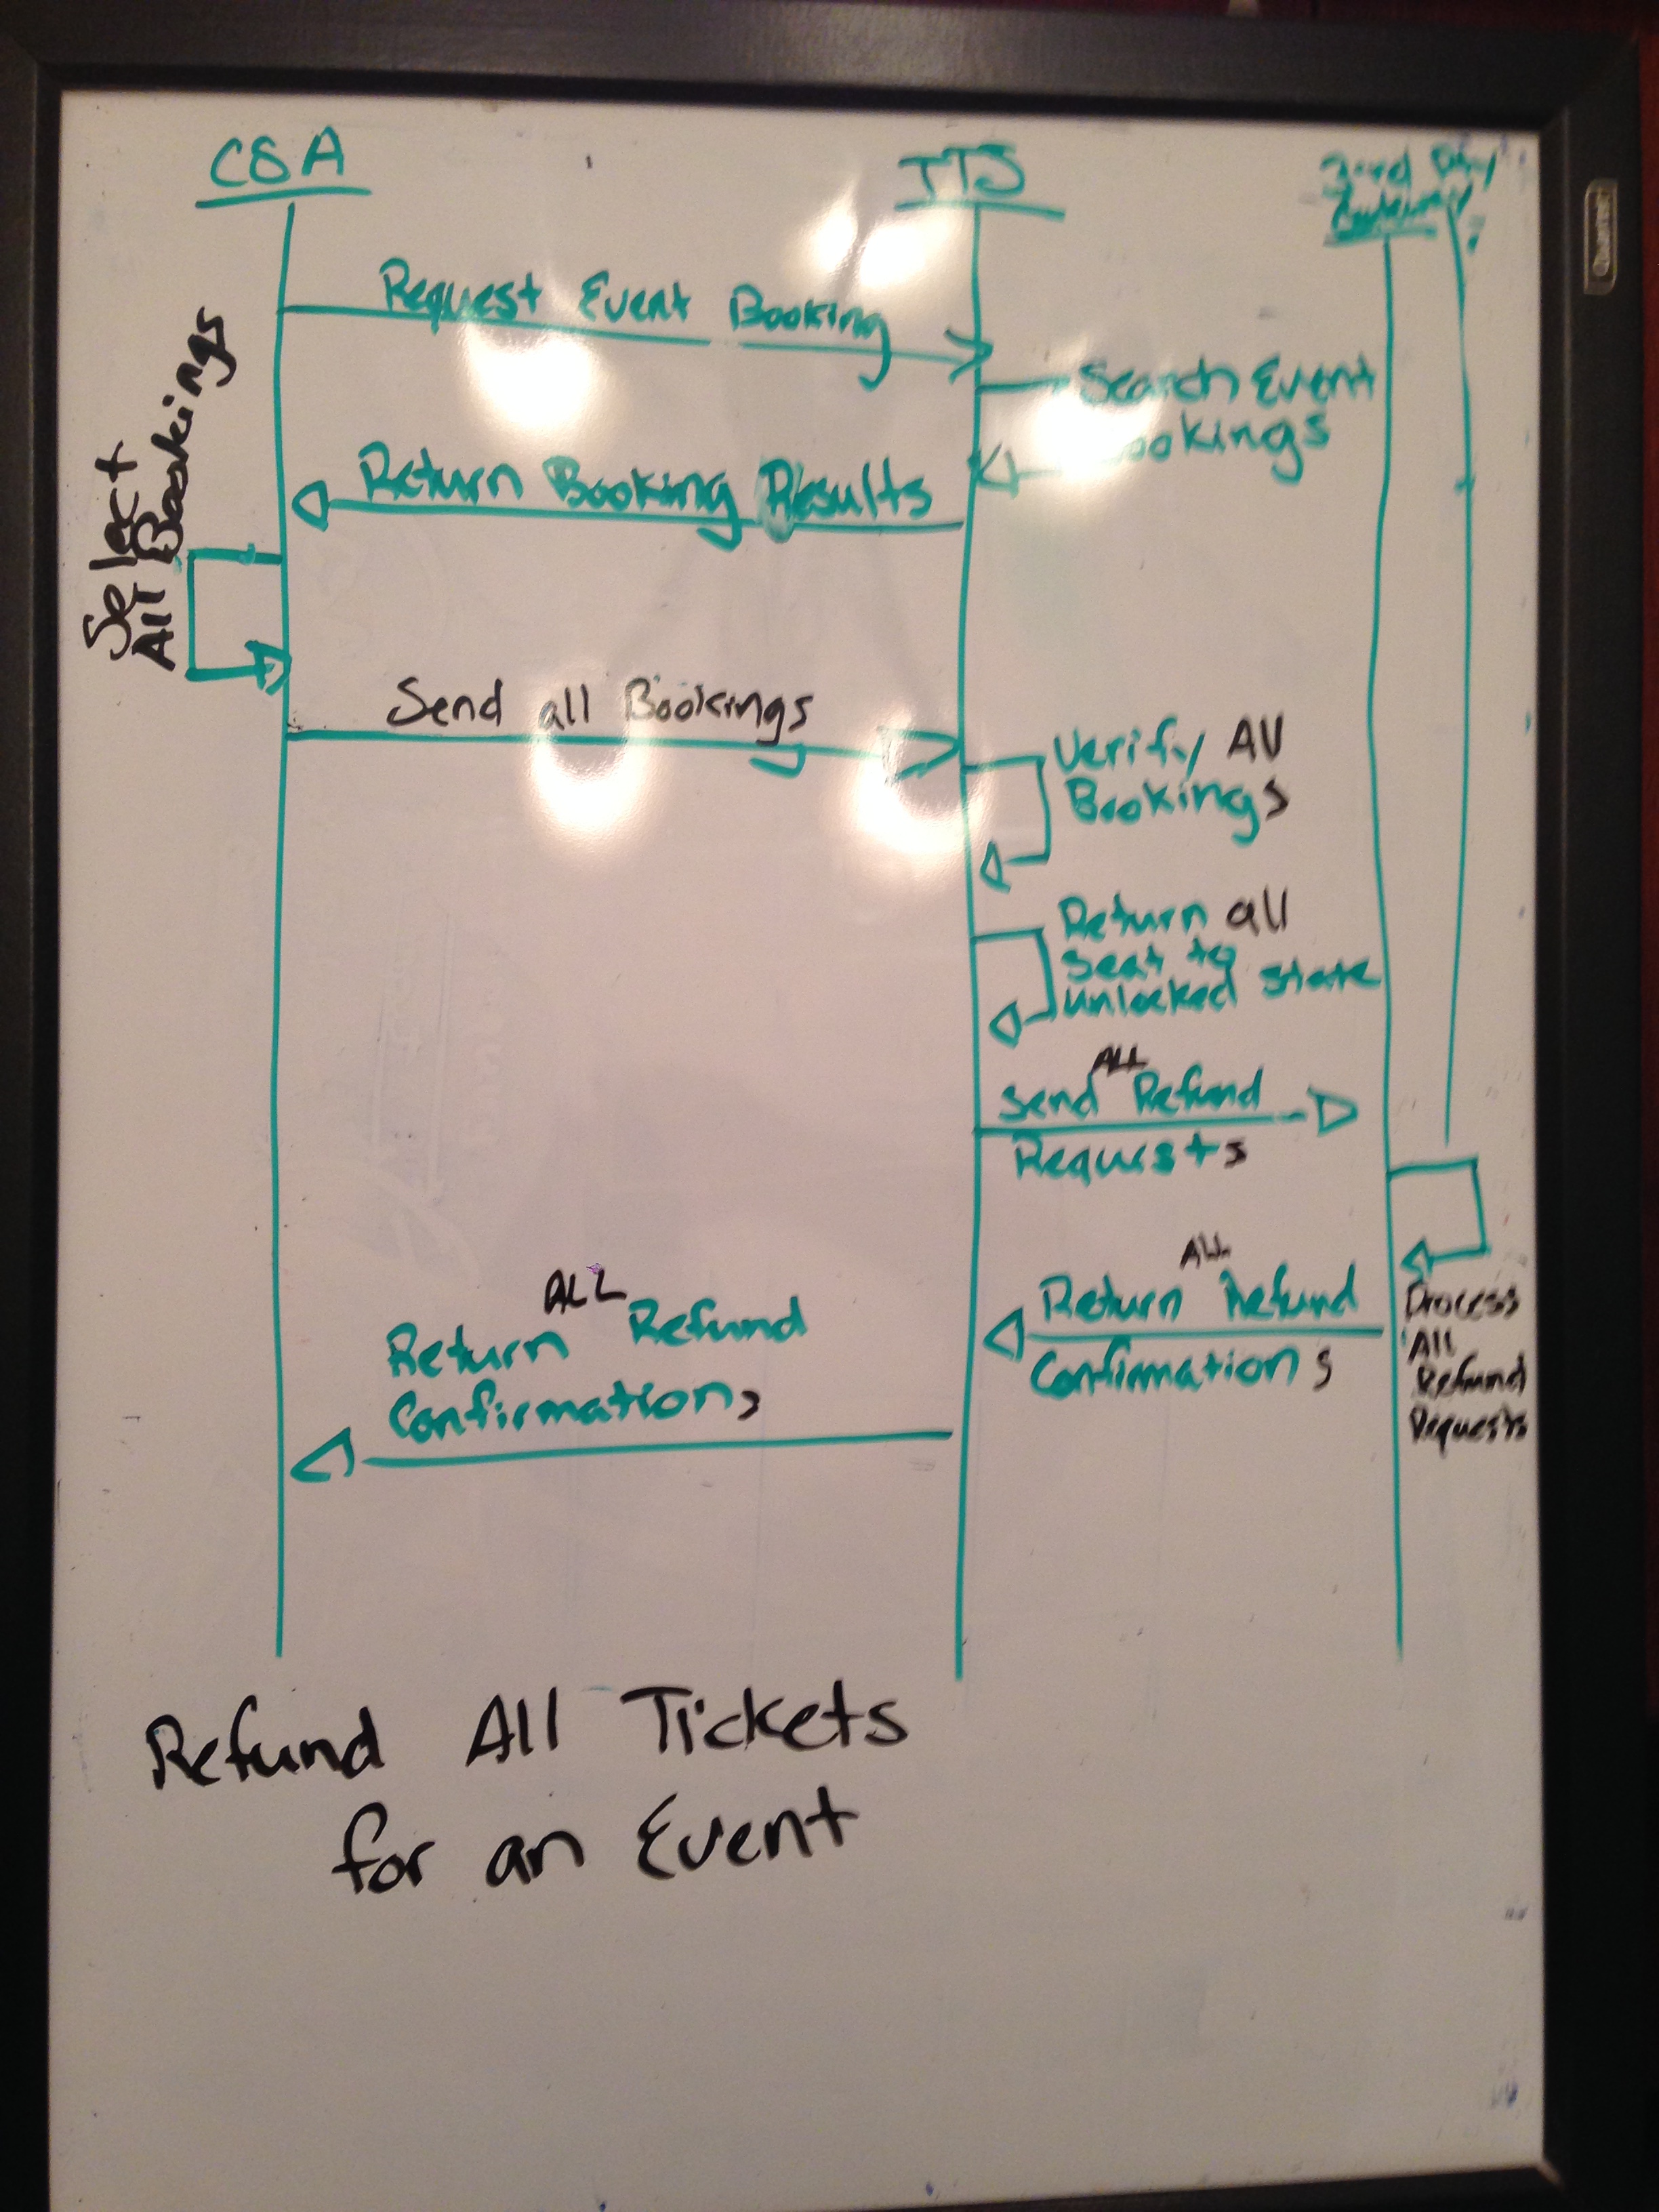 CSA
TTS
3rd
Request Event Booking
Search Event
ookings
Return Booking Results
Select
All Bookings
Send all Bookings
Verify All
Bookings
Return all
seat to
unlocked state
ALL
Send Refund
Requests
Process
All
Refund
Requests
ALL
Return Refund
Confirmations
ALL
Return Refund
Confirmations
Refund All Tickets
for an Event
Quartet